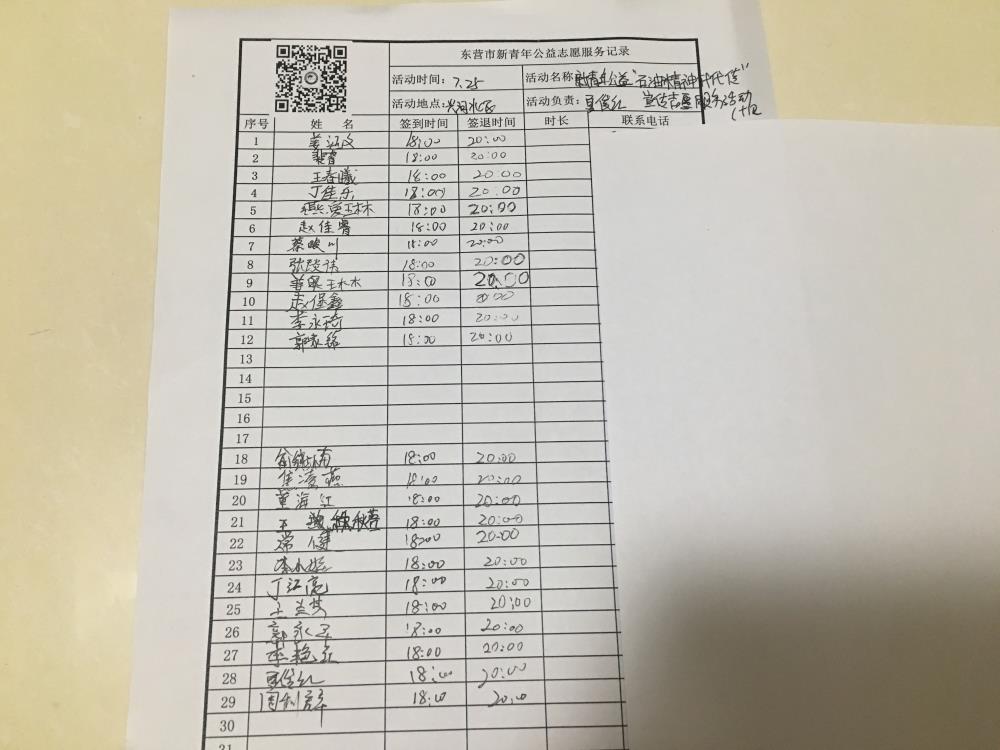 东营市新青年公益志愿服务记录
活动时间： 7.25 活动名称 新青年公益"石油精神时代传"
活动地点： 活动负责： 宣传志愿服务活动
序号 姓 名 签到时间 签退时间 时长 联系电话
1 18:00 20:00
2 18:00 20:00
3 王春曦 18:00 20:00
4 丁佳乐 18:00 20:00
5 18:00 20:00
6 赵佳睿 18:00 20:00
7 蔡峻川 18:00 20:00
8 18:00 20:00
9 18:00 20:00
10 赵保鑫 18:00 20:00
11 李永琦 18:00 20:00
12 郭家铭 18:00 20:00
13
14
15
16
17
18 18:00 20:00
19 焦凌燕 18:00 20:00
20 董海红 18:00 20:00
21 王 18:00 20:00
22 常健 18:00 20:00
23 18:00 20:00
24 丁江亮 18:00 20:00
25 王兰英 18:00 20:00
26 郭永军 18:00 20:00
27 李艳红 18:00 20:00
28 18:00 20:00
29 周利群 18:00 20:00
30
31